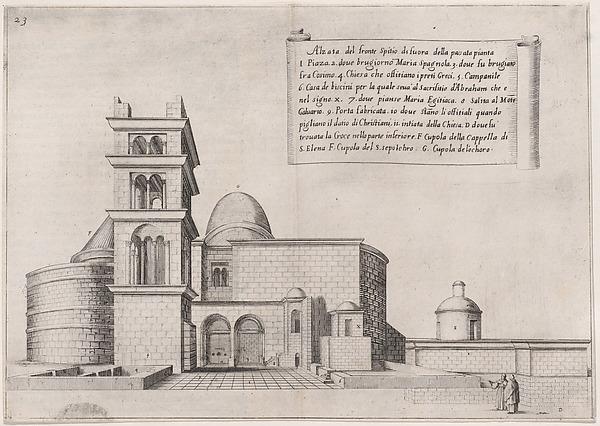 23
Alzata del fronte Spitio di fuora della passata pianta
1 Piaza. 2. doue brugiorno Maria Spagnola. 3. doue fu brugiato
fra Cosimo. 4. Chiesa che offitiano i preti Greci. 5. Campanile
6. Casa de per la quale seua' al Sacrifitio d'Abraham che e
nel signo. X. 7. doue pianse Maria Egitiaca. 8 Salita al Mote
Caluario. 9. Porta fabricata. 10 doue stano li offitiali quando
pigliano il datio di Christiani, 11. intrata della Chiesa. D doue fu
trouata la Croce nella parte inferiore. F Cupola della Cappella di
S. Elena F. Cupola del S. sepolchro. G. Cupola del choro.
X
D